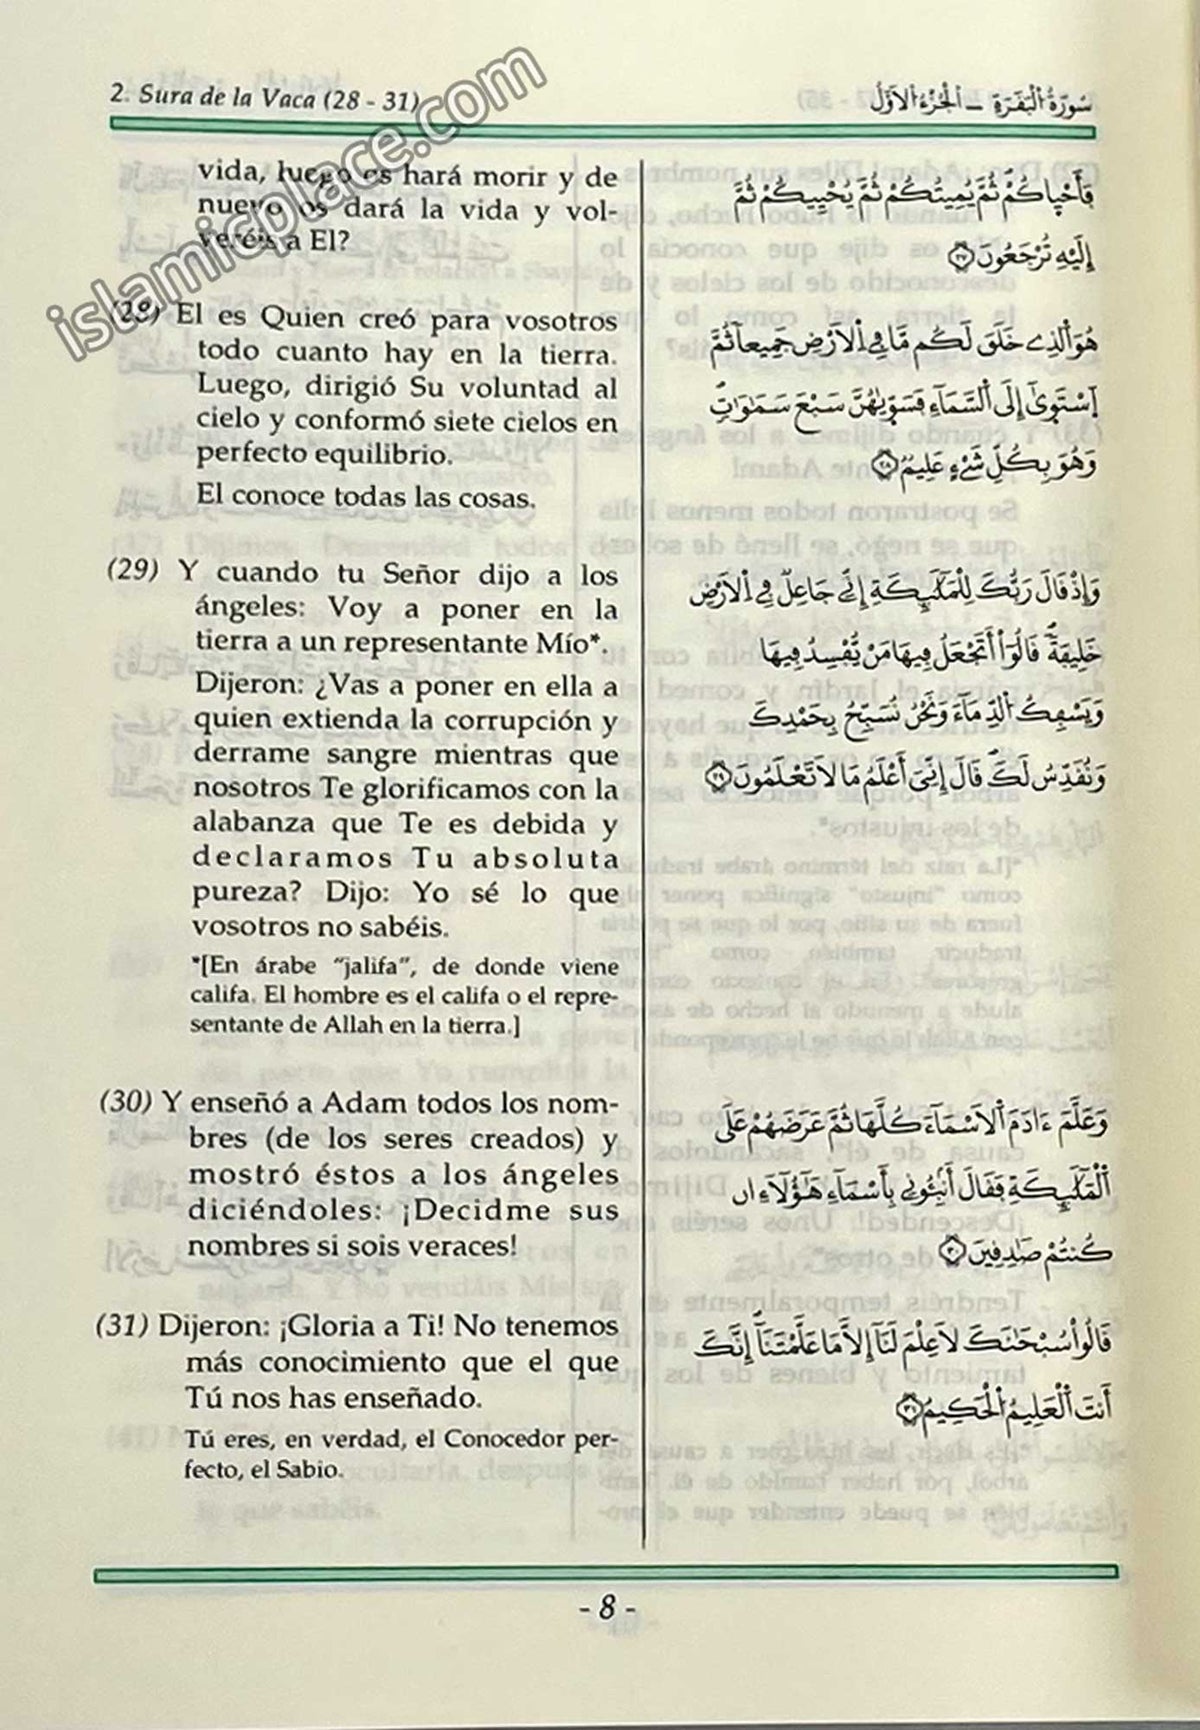 2. Sura de la Vaca (28 - 31)
سُورَةُ الْبَقَرَةِ – الْجُزْءُ الْأَوَّلُ
islamicplace.com
vida, luego os hará morir y de
nuevo os dará la vida y vol-
veréis a El?
(28) El es Quien creó para vosotros
todo cuanto hay en la tierra.
Luego, dirigió Su voluntad al
cielo y conformó siete cielos en
perfecto equilibrio.
El conoce todas las cosas.
(29) Y cuando tu Señor dijo a los
ángeles: Voy a poner en la
tierra a un representante Mío*.
Dijeron: ¿Vas a poner en ella a
quien extienda la corrupción y
derrame sangre mientras que
nosotros Te glorificamos con la
alabanza que Te es debida y
declaramos Tu absoluta
pureza? Dijo: Yo sé lo que
vosotros no sabéis.
*[En árabe “jalifa”, de donde viene
califa. El hombre es el califa o el repre-
sentante de Allah en la tierra.]
(30) Y enseñó a Adam todos los nom-
bres (de los seres creados) y
mostró éstos a los ángeles
diciéndoles: ¡Decidme sus
nombres si sois veraces!
(31) Dijeron: ¡Gloria a Ti! No tenemos
más conocimiento que el que
Tú nos has enseñado.
Tú eres, en verdad, el Conocedor per-
fecto, el Sabio.
فَأَحْيَاكُمْ ثُمَّ يُمِيتُكُمْ ثُمَّ يُحْيِيكُمْ ثُمَّ
إِلَيْهِ تُرْجَعُونَ ٢٧
هُوَ الَّذِي خَلَقَ لَكُم مَّا فِي الْأَرْضِ جَمِيعاً ثُمَّ
اَسْتَوَىٰ إِلَى السَّمَآءِ فَسَوَّيٰهُنَّ سَبْعَ سَمَٰوَٰتٍ
وَهُوَ بِكُلِّ شَيْءٍ عَلِيمٌ ٢٨
وَإِذْ قَالَ رَبُّكَ لِلْمَلَٰٓئِكَةِ إِنِّي جَاعِلٌ فِي الْأَرْضِ
خَلِيفَةً قَالُوٓا۟ أَتَجْعَلُ فِيهَا مَن يُفْسِدُ فِيهَا
وَيَسْفِكُ الدِّمَآءَ وَنَحْنُ نُسَبِّحُ بِحَمْدِكَ
وَنُقَدِّسُ لَكَ قَالَ إِنِّيَ أَعْلَمُ مَا لَا تَعْلَمُونَ ٢٩
وَعَلَّمَ ءَادَمَ الْأَسْمَآءَ كُلَّهَا ثُمَّ عَرَضَهُمْ عَلَى
الْمَلَٰٓئِكَةِ فَقَالَ أَنۢبِـُٔونِي بِأَسْمَآءِ هَٰٓؤُلَآءِ ان
كُنتُمْ صَٰدِقِينَ ٣٠
قَالُوا۟ سُبْحَٰنَكَ لَا عِلْمَ لَنَآ إِلَّا مَا عَلَّمْتَنَآ إِنَّكَ
أَنتَ الْعَلِيمُ الْحَكِيمُ ٣١
- 8 -